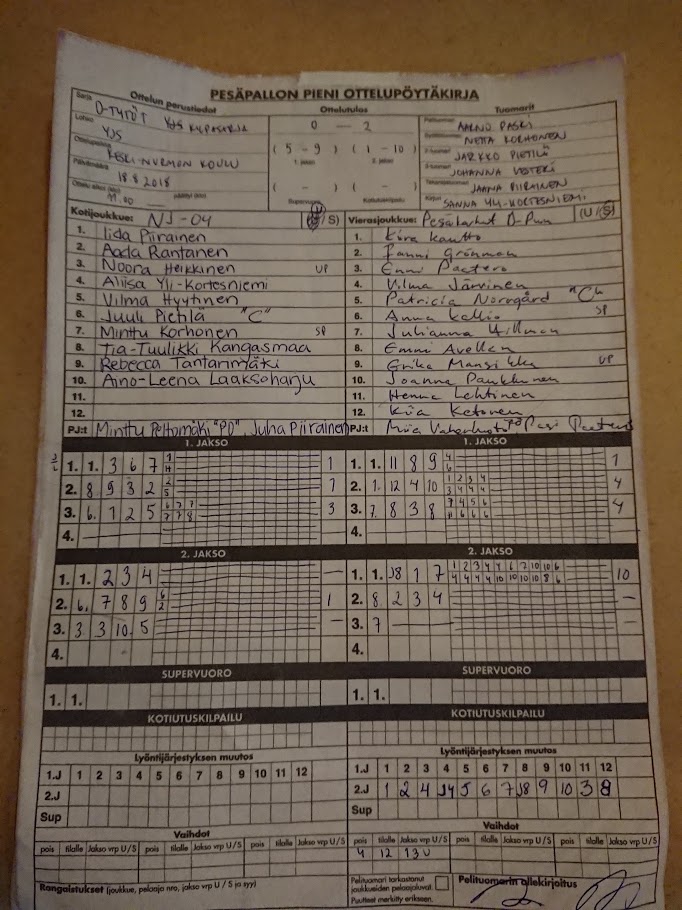 PESÄPALLON PIENI OTTELUPÖYTÄKIRJA
Ottelun perustiedot Ottelutulos Tuomarit
Sarja D-TYTÖT YJS KILPASARJA
Lohko YJS
KESKI-NURMON KOULU
Päivämäärä 18.8.2018
11.00
0 — 2
(5 - 9) (1 - 10)
1. jakso 2. jakso
( - ) ( - )
Supervuoro Kotiutuskilpailu
AARNO PASKI
NETTA KORHONEN
JARKKO PIETILÄ
JOHANNA VESTERI
JAANA PIIRAINEN
SANNA YLI-KORTESNIEMI
Kotijoukkue: NJ-04 (U/S)
1. Iida Piirainen
2. Aada Rantanen
3. Noora Heikkinen UP
4. Aliisa Yli-Kortesniemi
5. Vilma Hyytinen
6. Juuli Piehlä "C"
7. Minttu Korhonen SP
8. Tia-Tuulikki Kangasmaa
9. Rebecca Tantarinmäki
10. Aino-Leena Laaksoharju
11.
12.
PJ:t Minttu Peltomäki "PD", Juha Piirainen
Vierasjoukkue: Pesäkarhut D-Pun (U/S)
1. Kiira Kautto
2. Fanni Grönman
3. Enni Paetero
4. Vilma Järvinen
5. Patricia Norrgård "C"
6. Anna Kallio SP
7. Julianna Hillman
8. Emmi Avellan
9. Erika UP
10. Joanna Paukkunen
11. Henna Lehtinen
12. Kiia Ketonen
PJ:t Miia Pasi Paetero
1. JAKSO
1. 1. 3 6 7 1
2. 8 9 3 2 1
3. 6. 1 2 5 3
4.
1. JAKSO
1. 1. 11 8 9 1
2. 1. 12 4 10 4
3. 7. 8 3 8 4
4.
2. JAKSO
1. 1. 2 3 4 —
2. 6. 7 8 9 1
3. 3 3 10 5 —
4.
2. JAKSO
1. 1. J8 1 7 1 2 3 4 4 6 7 10 10 6 10
4 4 4 4 10 10 10 10 8 6
2. 8 2 3 4 —
3. 7 —
4.
SUPERVUORO
1. 1.
SUPERVUORO
1. 1.
KOTIUTUSKILPAILU
KOTIUTUSKILPAILU
Lyöntijärjestyksen muutos
1.J 1 2 3 4 5 6 7 8 9 10 11 12
2.J
Sup
Lyöntijärjestyksen muutos
1.J 1 2 3 4 5 6 7 8 9 10 11 12
2.J 1 2 4 J4 5 6 7 J8 9 10 3 8
Sup
Vaihdot
pois tilalle Jakso vrp U/S pois tilalle Jakso vrp U/S pois tilalle Jakso vrp U/S
Vaihdot
pois tilalle Jakso vrp U/S pois tilalle Jakso vrp U/S pois tilalle Jakso vrp U/S
4 12 13U
Rangaistukset (joukkue, pelaaja nro, jakso vrp U/S ja syy)
Pelituomari tarkastanut
joukkueiden pelaajaluvat
Puutteet merkitty erikseen.
Pelituomarin allekirjoitus